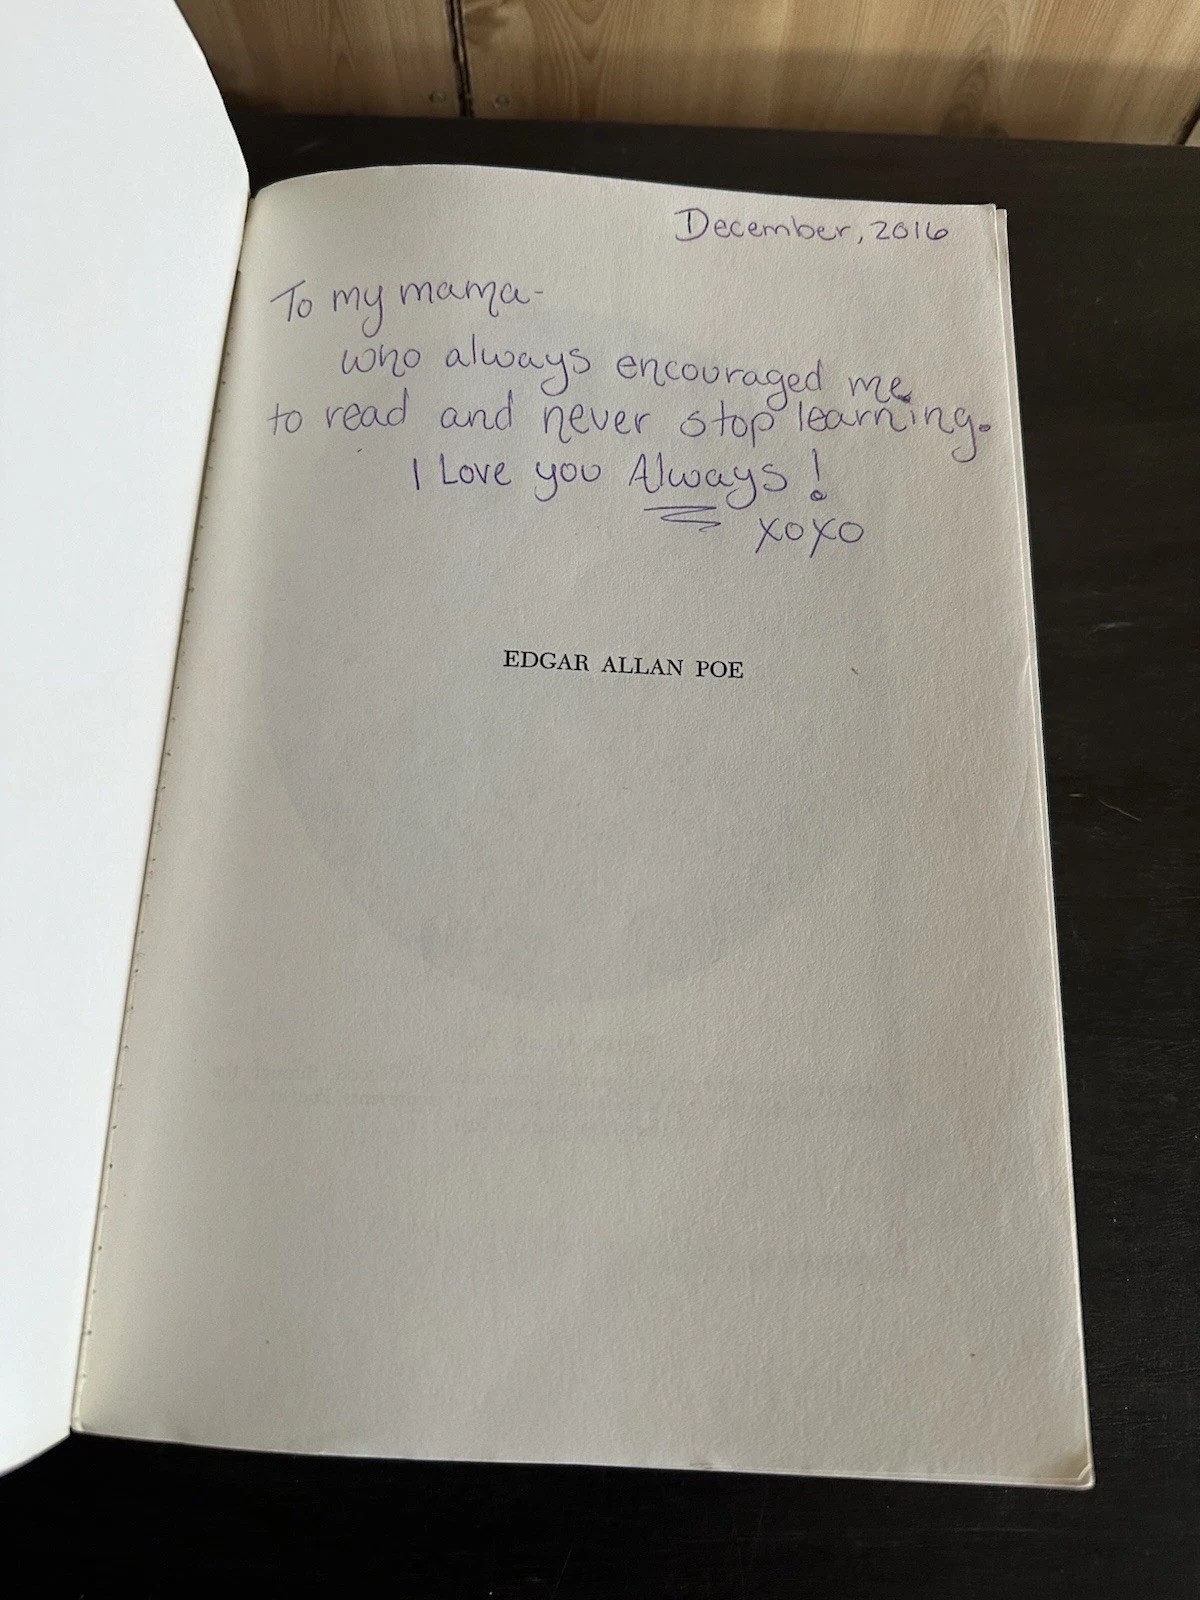 December, 2016
To my mama-
who always encouraged me
to read and never stop learning.
I Love you Always!
xoxo
EDGAR ALLAN POE